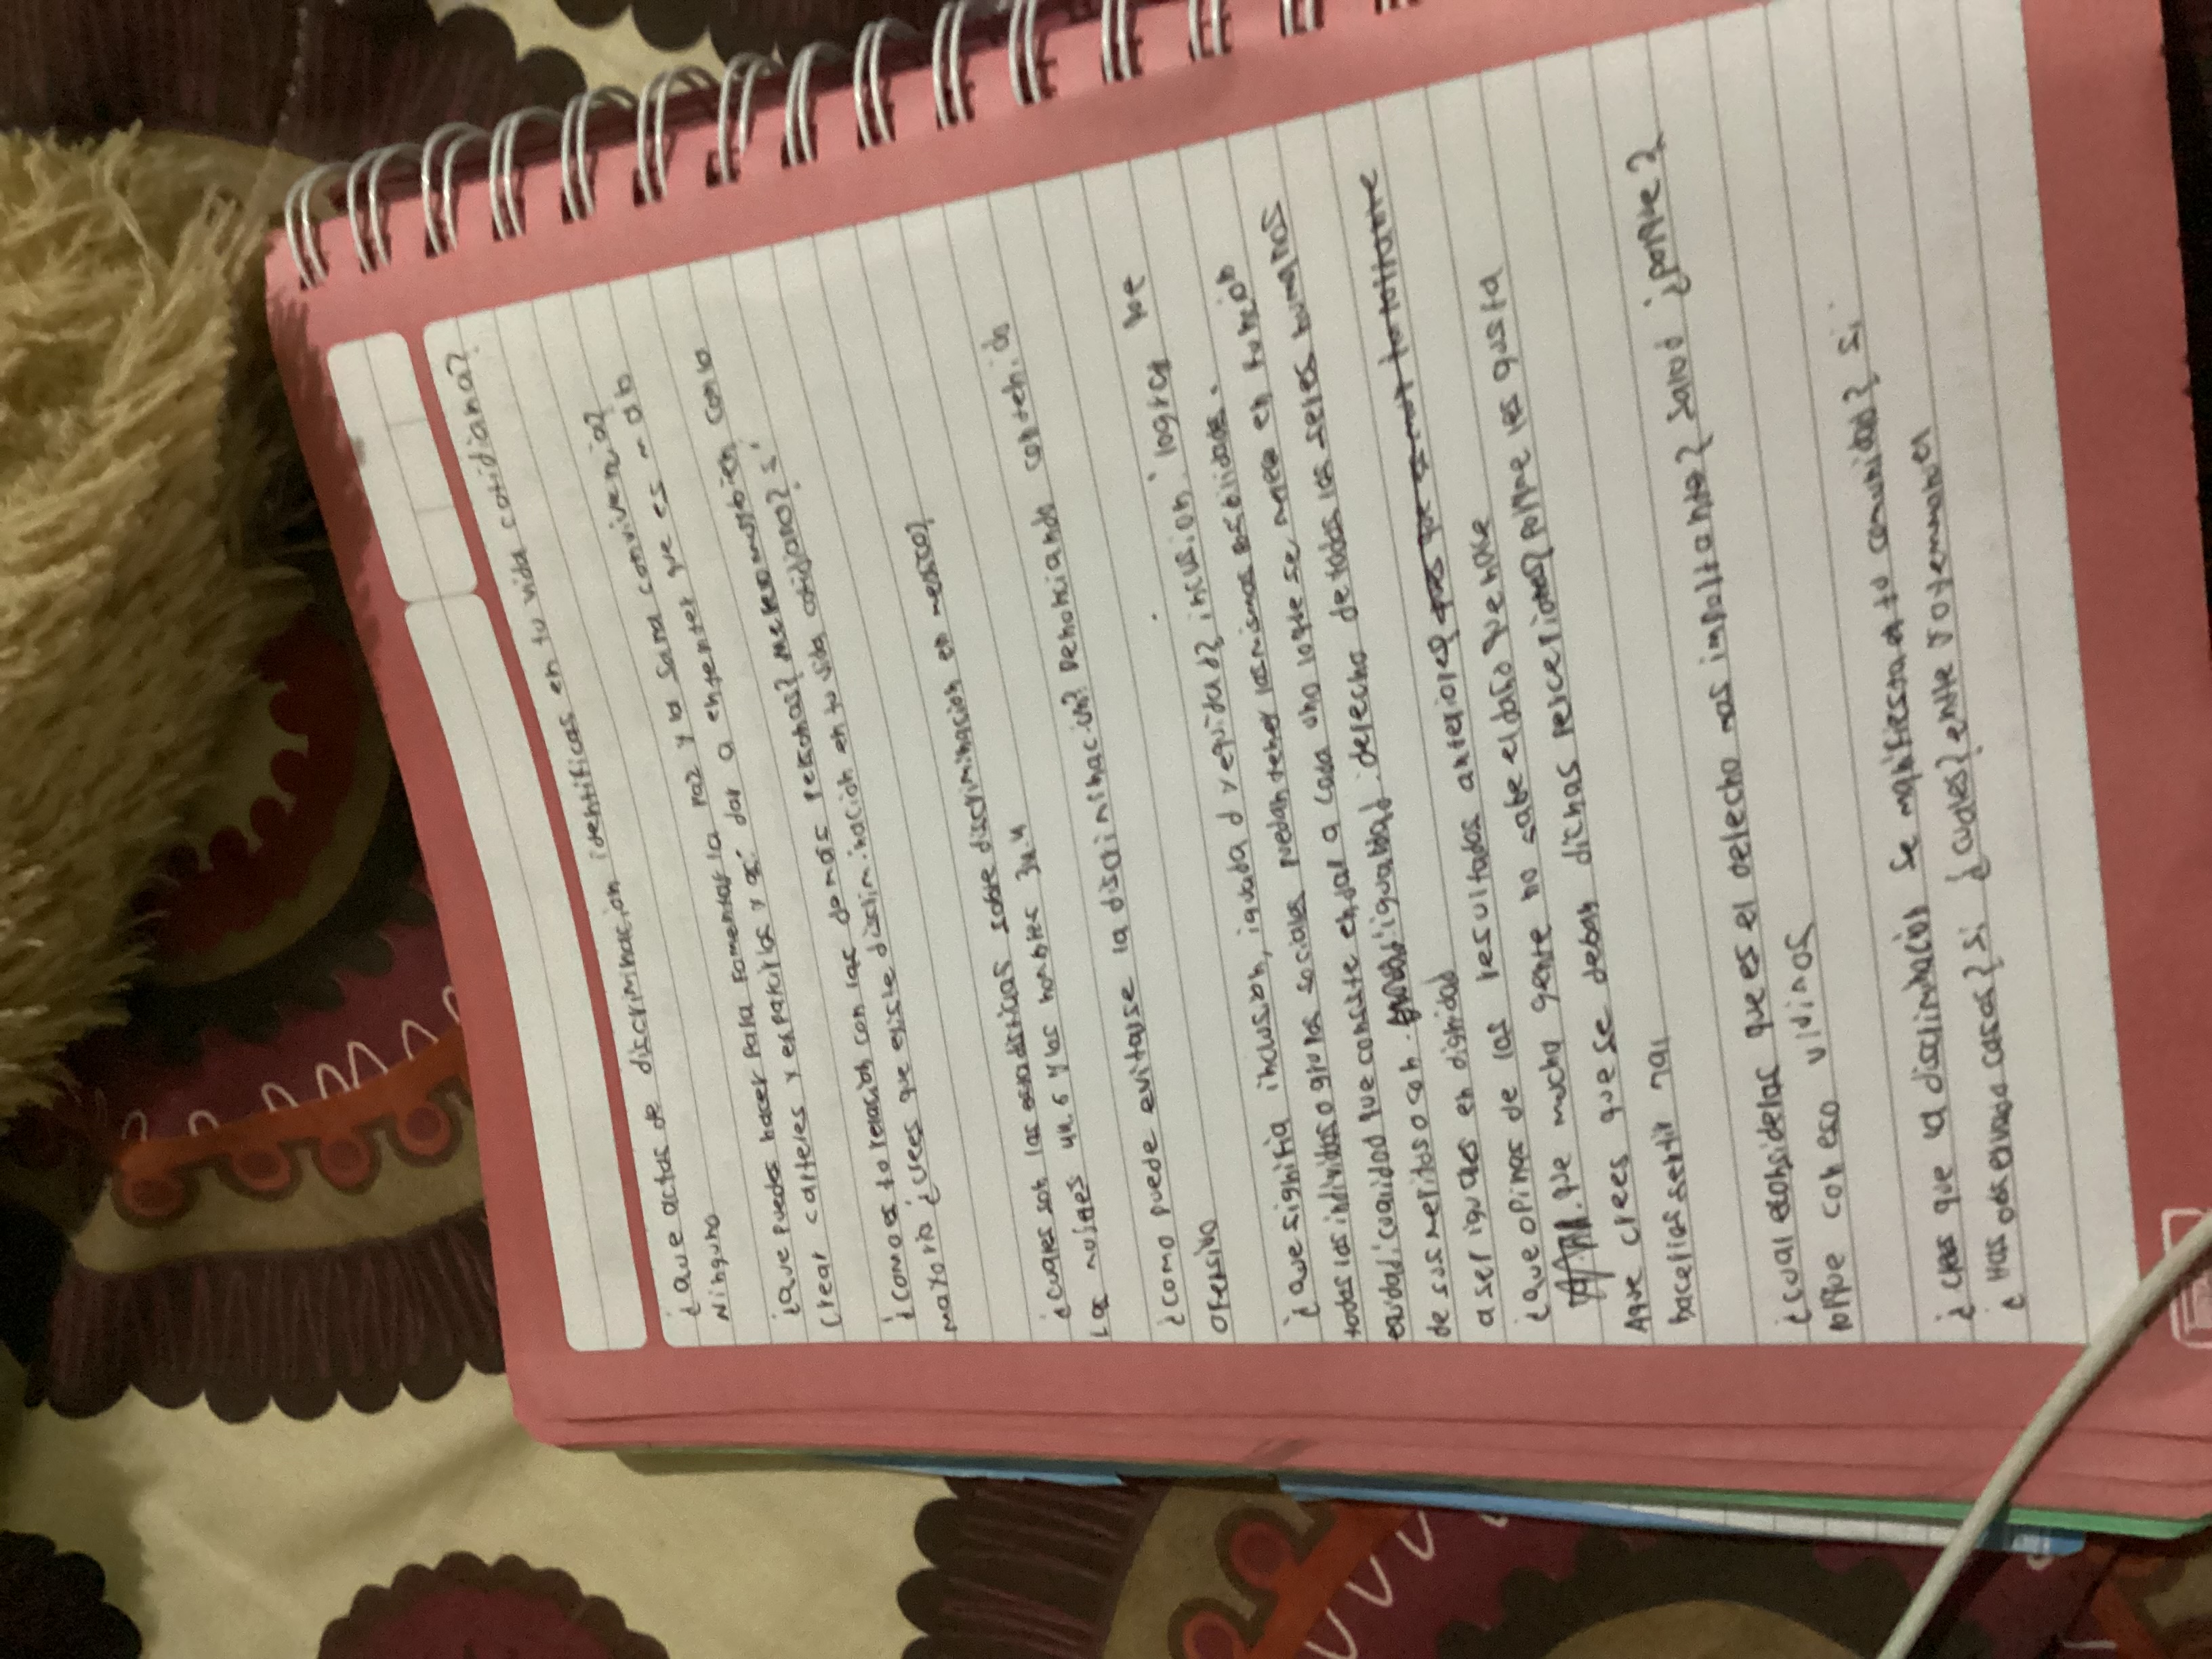 ¿que actos de discriminacion identificas en tu vida cotidiana?
Ninguno
¿que puedes hacer para fomentar la paz y la sana convivencia?
Crear carteles y esparcirlos y dar a entender que es
¿como es tu relacion con las demas personas? me llevo muy bien con la
mayoria ¿crees que existe discriminacion en tu vida cotidiano? si
¿cuales son las estadisticas sobre discriminacion en mexico?
La mujeres y los hombres
¿como puede evitarse la discriminación? Denonciando contenido
ofensivo
¿que signifia inclusion, iguadad y equidad? inclusion: lograr que
todos los individuos o grupos sociales puedan tener las mismas posibilidades.
equidad: cualidad que consiste en dar a cada uno lo que se merece en funcion
de sus meritos o con. igualdad: derecho de todos los seres humanos
a ser iguales en dignidad
¿que opinas de los resultados anteriores?
que mucha gente no sabe el daño que hace
Aque crees que se deban dichas percepciones? porque les gusta
hacerlos sentir mal
¿cual consideras que es el derecho mas importante? salud ¿porque?
porque con eso vivimos
¿crees que la discriminación se manifiesta en tu comunidad? si
¿Has observado casos? si ¿cuales? entre